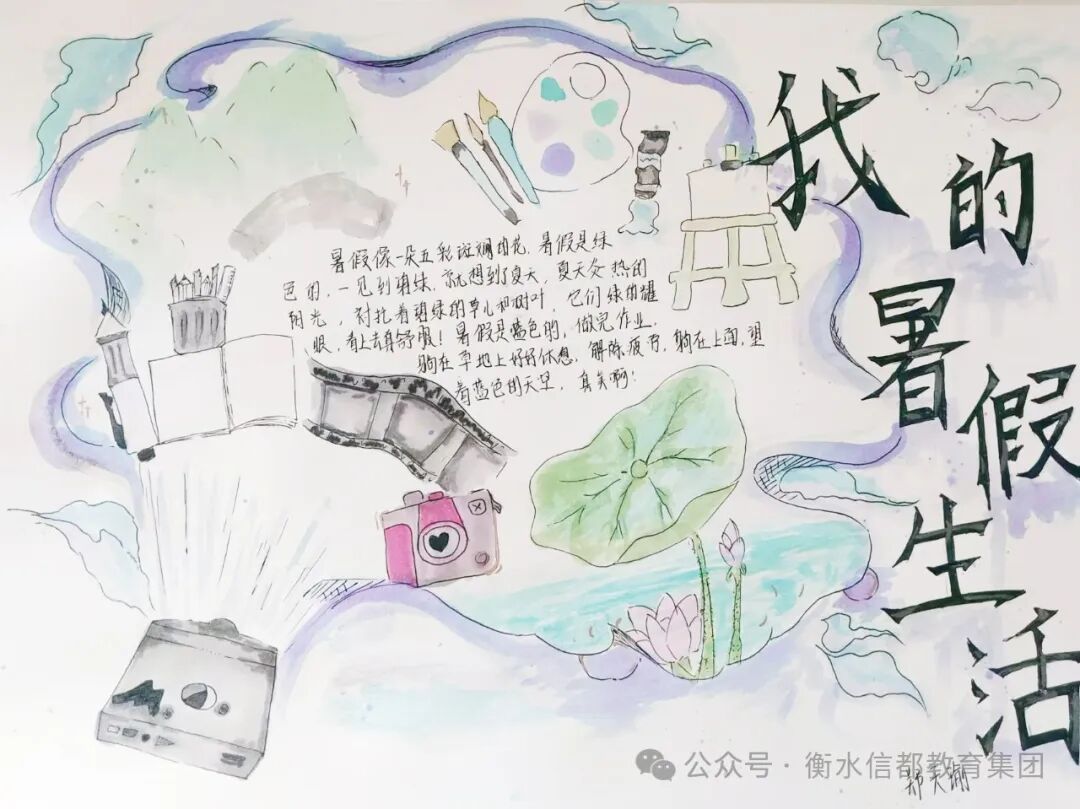 我的暑假生活
暑假像一朵五彩斑斓的花，暑假是绿
色的，一见到碧绿，就想到了夏天，夏天炎热的
阳光，衬托着碧绿的草儿和树叶，它们绿得耀
眼，看上去真舒服！暑假是蓝色的，做完作业，
躺在草地上好好休息，解除疲劳，躺在上面，望
着蓝色的天空，真美啊！
公众号·衡水信都教育集团